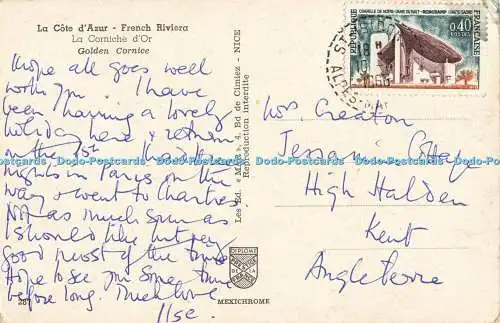 La Côte d'Azur - French Riviera
La Corniche d'Or
Golden Cornice
hope all goes well
with you. I have
been having a lovely
holiday here & return
on the 1st. I had two
nights in Paris on the
way & went to Chartres
Not as much sun as
I should like but very
good most of the time
Hope to see you some time
before long. Much love
Ilse.
287
MEXICHROME
Les Ed. « MAR », 4, Bd de Cimiez - NICE
Reproduction interdite
DIPLOME
CHAPELLE DE NOTRE-DAME DU HAUT - RONCHAMP HAUTE-SAONE
0,40
POSTES
REPUBLIQUE
FRANCAISE
ALPES-MAR
Creaton
Jessamine Cottage
High Halden
Kent
Angleterre
Dodo-Postcards Dodo-Postcards Dodo-Postcards Dodo-Postcards